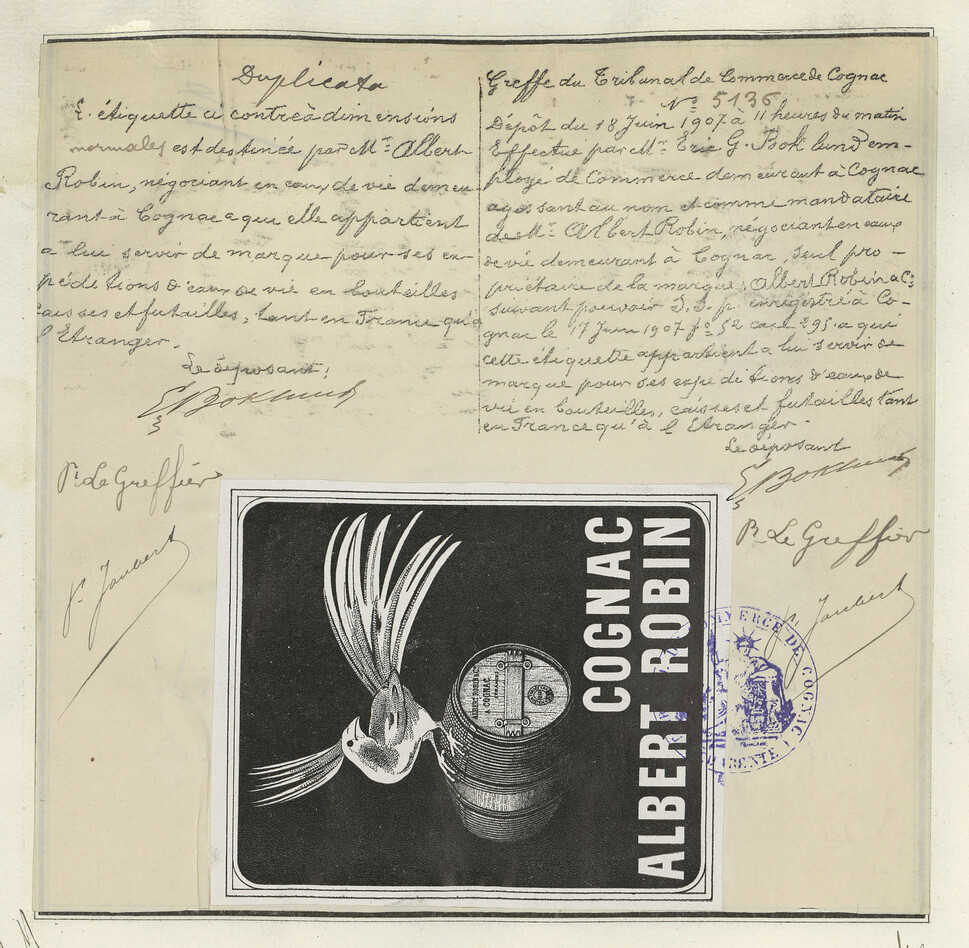 Duplicata
L'étiquette ci contre à dimensions
normales est destinée par Mr. Albert
Robin, négociant en eaux de vie demeu-
rant à Cognac a qui elle appartient
a lui servir de marque pour ses ex-
péditions d'eaux de vie en bouteilles
caisses et futailles, tant en France qu'à
l'Etranger.
Le déposant:
E Boklund
Pr. Le Greffier
P. Joubert
Greffe du Tribunal de Commerce de Cognac
No 5136
Dépôt du 18 Juin 1907 à 11 heures du matin
Effectué par Mr. Eric G. Boklund em-
ployé de Commerce demeurant à Cognac
agissant au nom et comme mandataire
de Mr. Albert Robin, négociant en eaux
de vie demeurant à Cognac, seul pro-
priétaire de la marque: Albert Robin & Co
suivant pouvoir S.S.p. enregistré à Co-
gnac le 17 Juin 1907 fo 52 case 95 a qui
cette étiquette appartient a lui servir de
marque pour ses expeditions d'eaux de
vie en bouteilles, caisses et futailles tant
en France qu'à l'Etranger.
Le déposant
E Boklund
Pr. Le Greffier
P. Joubert
COGNAC
ALBERT ROBIN
ALBERT ROBIN & Co
COGNAC
COMMERCE DE COGNAC
CHARENTE